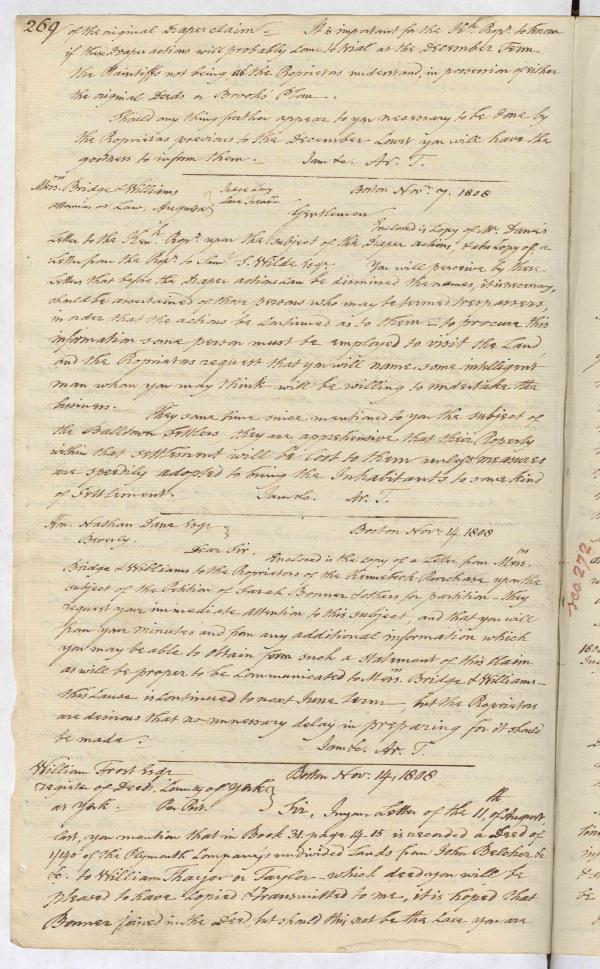 269
of the original Draper claim. It is important for the Ken. Propr. to know
if these Draper actions will probably come to trial at the December Term
the Plaintiffs not being as the Proprietors understand, in possession of either
the original Deeds or Brooks' Plan.
Should any thing further appear to you necessary to be done by
the Proprietors previous to the December Court you will have the
goodness to inform them. I am &c. Ar. T.
Messrs. Bridge & Williams Boston Novr. 7, 1808
Attornies at Law, Augusta
Gentlemen
Enclosed is Copy of Mr. Dane's
Letter to the Kenk. Propr. upon the subject of the Draper actions, & also Copy of a
Letter from the Propr. to Saml. S. Wilde Esqr. You will perceive by these
Letters that before the Draper actions can be dismissed the names, it is necessary,
should be ascertained of those persons who may be termed trespassers,
in order that the actions be continued as to them – to procure this
information some person must be employed to visit the Land
and the Proprietors request that you will name some intelligent
man whom you may think will be willing to undertake the
business. They some time since mentioned to you the subject of
the Balltown Settlers, they are apprehensive that their Property
within that settlement will be lost to them unless measures
are speedily adopted to bring the Inhabitants to some kind
of Settlement. I am &c. Ar. T.
Hon. Nathan Dane Esqr Boston Nov. 14. 1808
Beverly.
Dear Sir. Enclosed is the Copy of a Letter from Messrs.
Bridge & Williams to the Proprietors of the Kennebeck Purchase upon the
subject of the Petition of Sarah Bonner & others for partition – they
request your immediate attention to this subject, and that you will
from your minutes and from any additional information which
you may be able to obtain form such a statement of this claim
as will be proper to be communicated to Messrs. Bridge & Williams –
this Cause is continued to next June term, but the Proprietors
are desirous that no unnecessary delay in preparing for it should
be made. I am &c. Ar. T.
William Frost Esqr Boston Nov. 14, 1808
register of Deeds, County of York
at York. Per Post.
Sir, In your Letter of the 11th of August
last, you mention that in Book 31. page 14. 15 is recorded a Deed of
1/140 of the Plymouth Company's undivided Lands from John Belcher &c
&c. to William Thayer or Taylor – which deed you will be
pleased to have Copied & transmitted to me, it is hoped that
Bonner joined in the Deed, but should this not be the Case you are
272